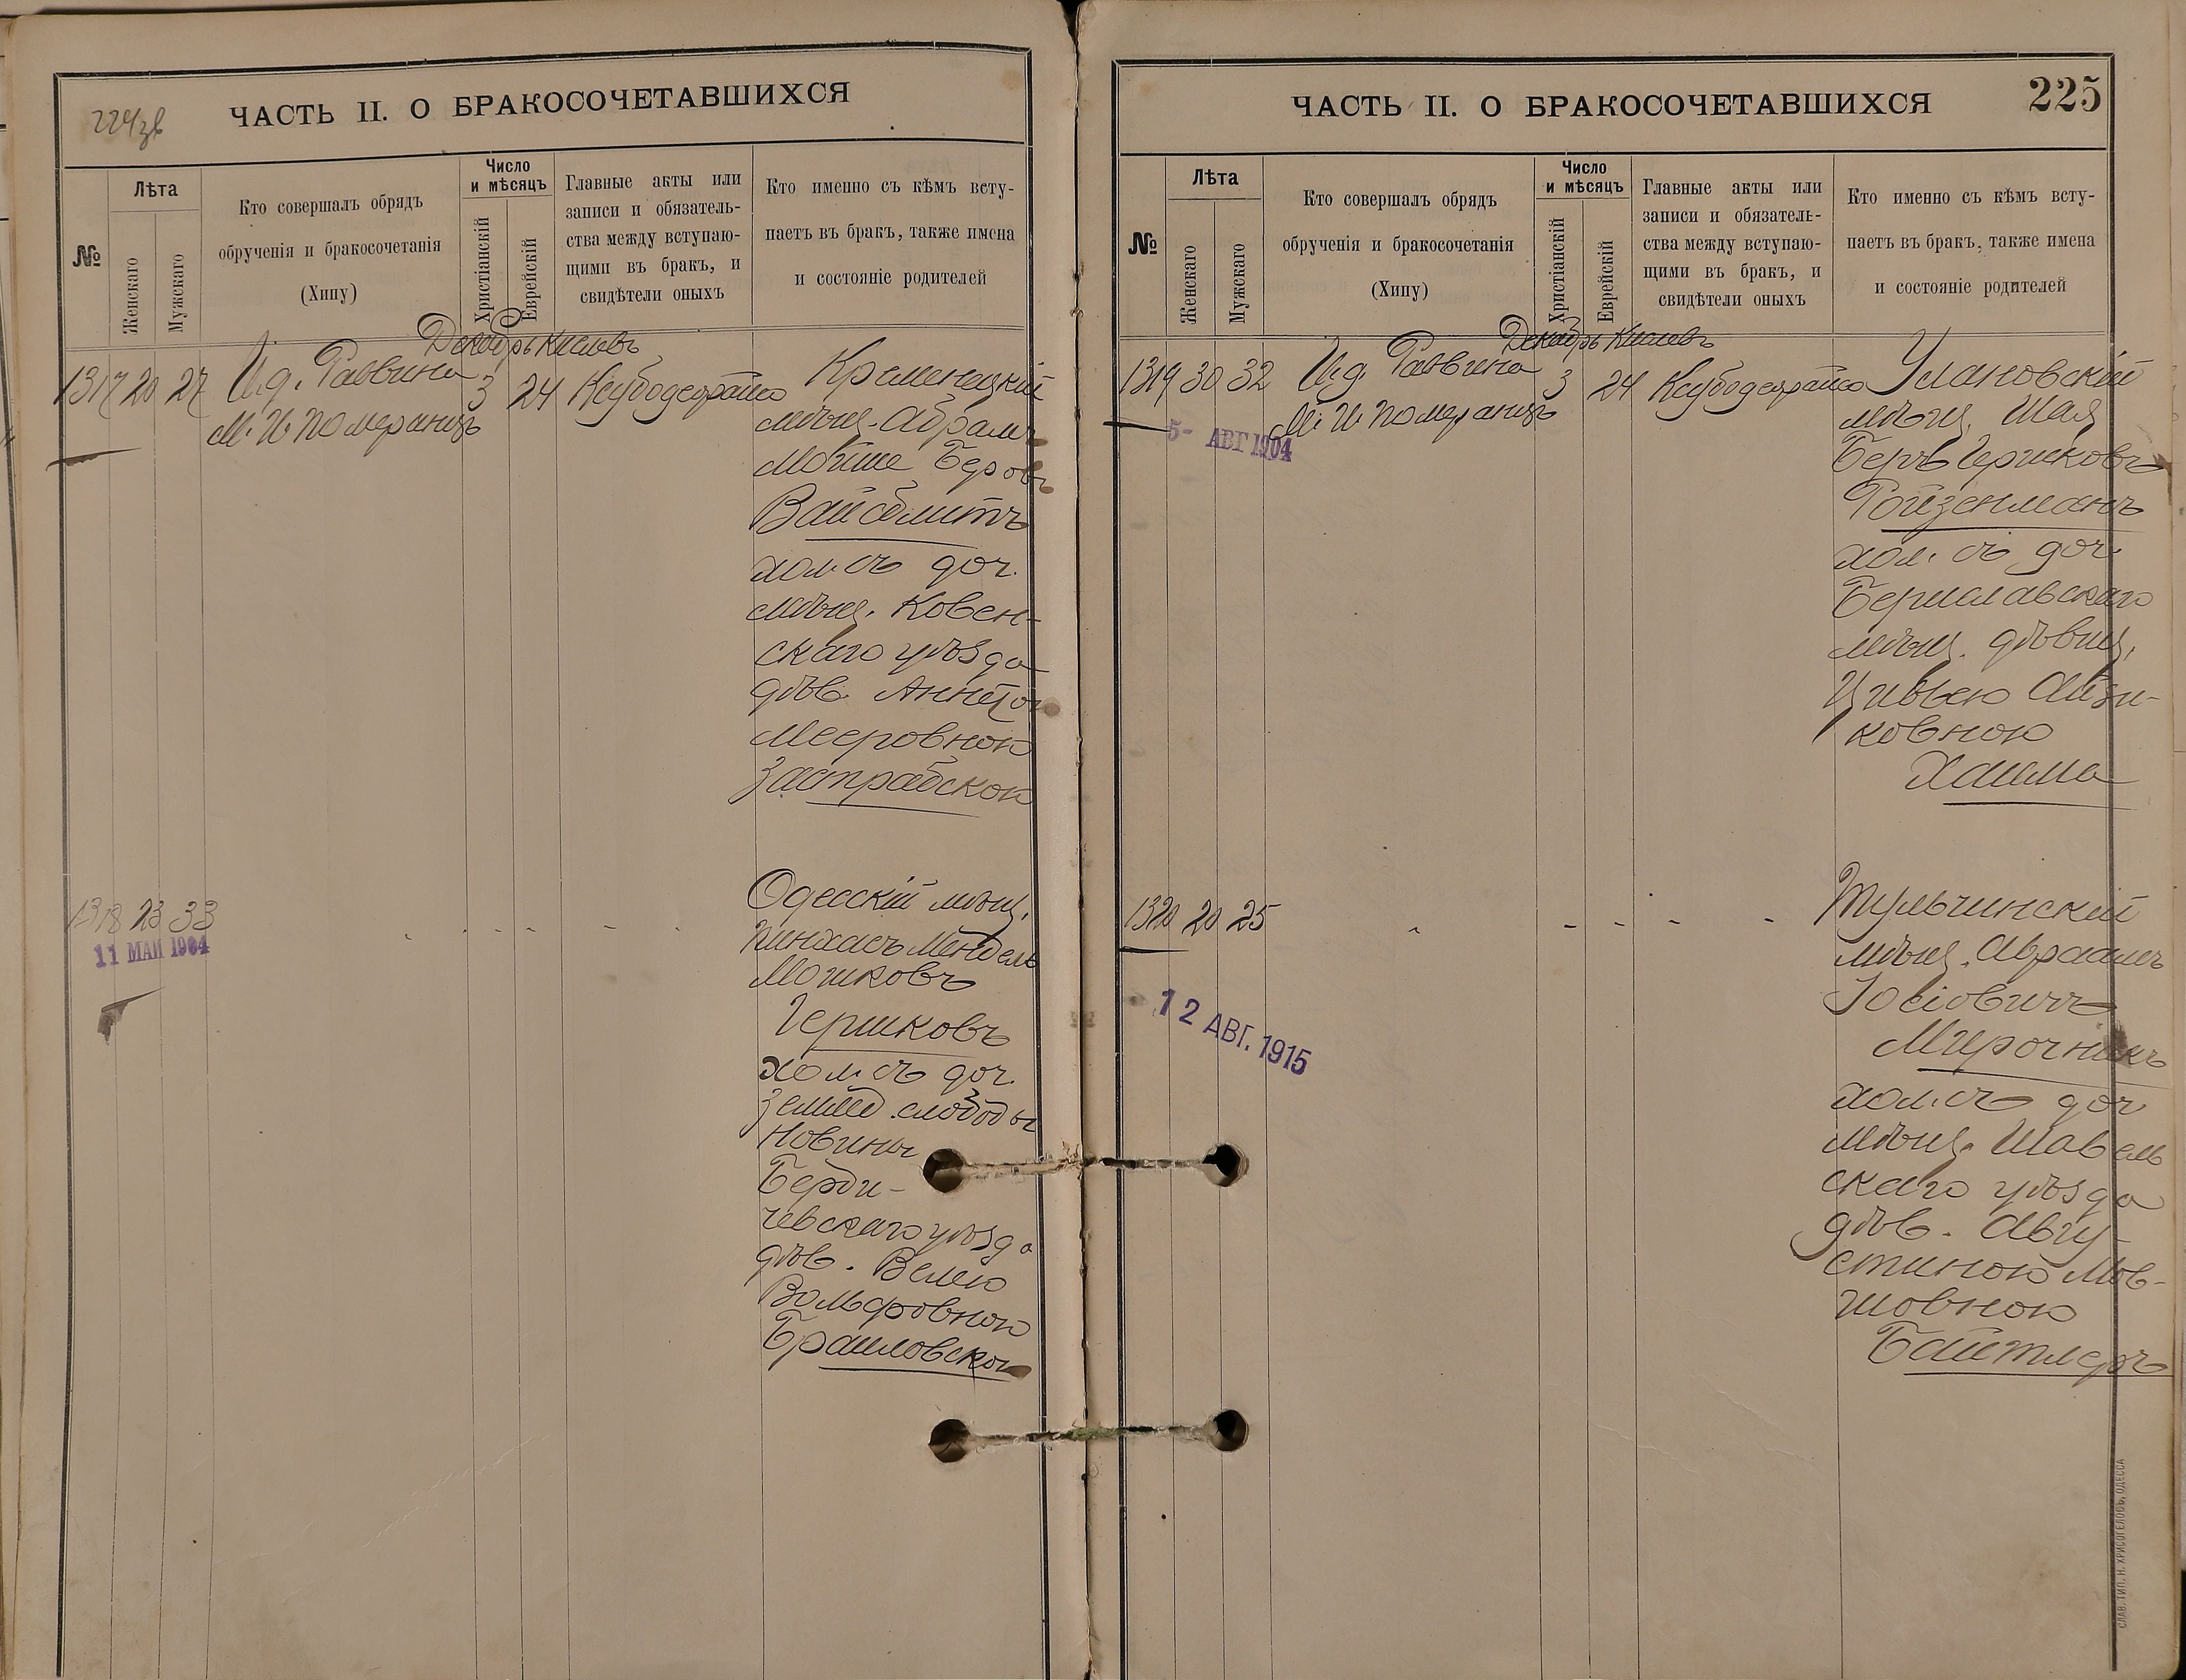 224зв
ЧАСТЬ II. О БРАКОСОЧЕТАВШИХСЯ
№
Лѣта
Женскаго
Мужскаго
Кто совершалъ обрядъ
обрученія и бракосочетанія
(Хипу)
Число
и мѣсяцъ
Христіанскій
Еврейскій
Главные акты или
записи и обязатель-
ства между вступаю-
щими въ бракъ, и
свидѣтели оныхъ
Кто именно съ кѣмъ всту-
паетъ въ бракъ, также имена
и состояніе родителей
Декабрь Кислевъ
1317 20 27 И.д. Раввина 3 24
М. И. Померанцъ
Кременецкій
мѣщ. Абрамъ
Мойше Беровъ
Вайсблитъ
хол. съ доч.
мѣщ. Ковен-
скаго уѣзда
дѣв. Аннетой
Мееровной
Застрабской
1318 23 33
11 МАЙ 1904
Одесскій мѣщ.
Пинхасъ Мендель
Мошковъ
Гершковъ
хол. съ доч.
землед. слободы
Новины
Берди-
чевскаго уѣзда
дѣв. Велею
Вольфовною
Браиловской
ЧАСТЬ II. О БРАКОСОЧЕТАВШИХСЯ
225
№
Лѣта
Женскаго
Мужскаго
Кто совершалъ обрядъ
обрученія и бракосочетанія
(Хипу)
Число
и мѣсяцъ
Христіанскій
Еврейскій
Главные акты или
записи и обязатель-
ства между вступаю-
щими въ бракъ, и
свидѣтели оныхъ
Кто именно съ кѣмъ всту-
паетъ въ бракъ, также имена
и состояніе родителей
Декабрь Кислевъ
1319 30 32 И.д. Раввина 3 24
М. И. Померанцъ
5- АВГ 1904
Улановскій
мѣщ. Шая
Беръ Гершковъ
Ройзенманъ
хол. съ доч.
Бериславскаго
мѣщ. дѣвиц.
Цивьею Айзи-
ковною
Хаима
1320 20 25
12 АВГ. 1915
Тульчинскій
мѣщ. Авраамъ
Іосіовичъ
Мирочникъ
хол. съ доч
мѣщ. Шавель
скаго уѣзда
дѣв. Авгу-
стиною Мов-
шовною
Байтлеръ
СЛАВ. ТИП. Н. ХРИСОГЕЛОСЪ, ОДЕССА